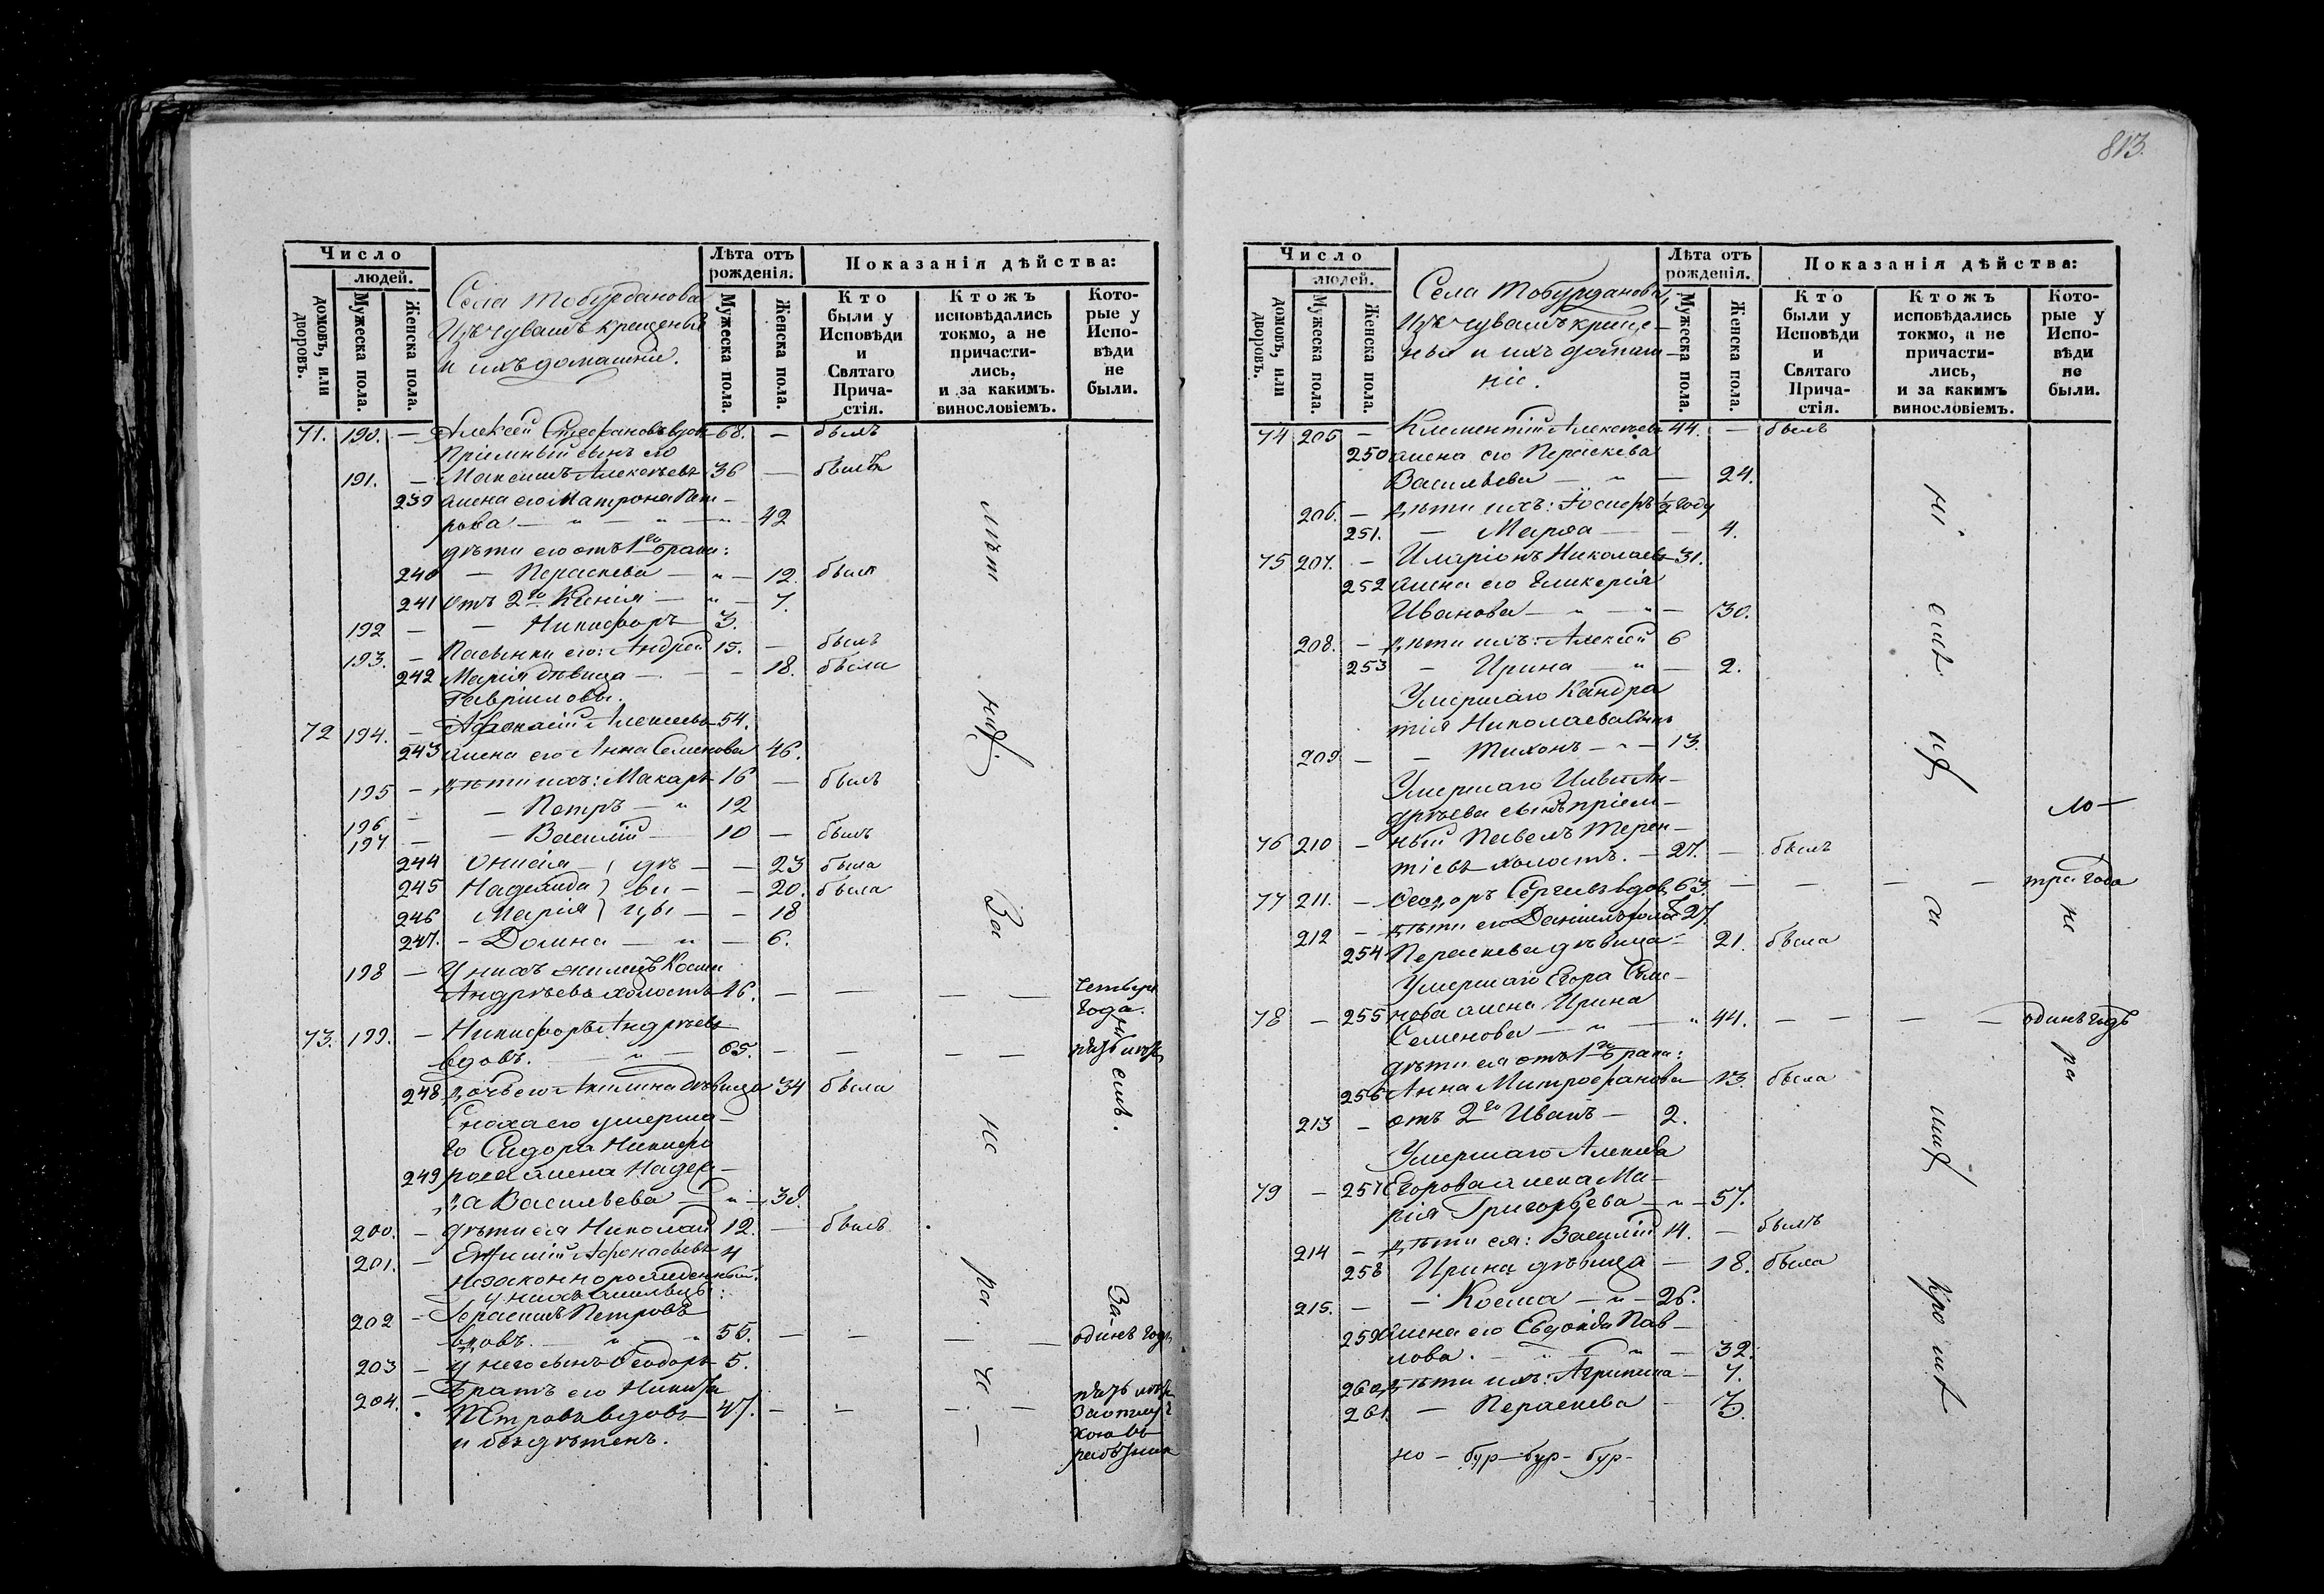 813.
Число
людей.
домовъ, или дворовъ.
Мужеска пола.
Женска пола.
Села Тобурданова
Изъ чувашъ крещеныя
и ихъ домашніе.
Лѣта отъ рожденія.
Мужеска пола.
Женска пола.
Показанія дѣйства:
Кто были у Исповѣди и Святаго Причастія.
Ктожъ исповѣдались токмо, а не причастились, и за какимъ винословіемъ.
Которые у Исповѣди не были.
71. 190. — Алексей Стефановъ вдов 68. — былъ
Пріемный сынъ его
191. — Максимъ Алексѣевъ 36 — былъ
239 жена его Матрона Пет-
рова — „ — „ — 42
дѣти его отъ 1го брака:
240 — Параскева — „ — 12. была
241 отъ 2го Ксенія — „ — 7.
192 — — Никифоръ 3.
193. — Пасынки его: Андрей 15. — былъ
242 Марія дѣвица — — 18. была
Гавріиловы.
72 194. — Афонасій Алексѣевъ 54.
243 жена его Анна Семенова 46.
195 — дѣти ихъ: Макаръ 16 — былъ
196 — — Петръ — „ 12
197 — — Василій — 10 — былъ
244 Онисія дѣ — — 23 была
245 Надежда ви — — 20. была
246 Марія цы — — 18
247. — Домна — „ — 6.
198 — У нихъ жилецъ Косма
Андрѣевъ холостъ 46. — — — — Четыре
года.
73. 199. — Никифоръ Андрѣевъ
вдовъ. — „ — 65. — — — —
248 дочь его Акилина дѣвица 34 была
Сноха его умерша-
го Сидора Никифо
249 рова жена Надеж-
да Васильева — „ — 38.
200. — дѣти ея Николай 12. — былъ
201. — Евтихій Афонасьевъ 4
незаконнорожденный.
у нихъ жилецъ:
202 — Герасимъ Петровъ
вдовъ. — „ — „ 55. — — — — одинъ годъ
203 — у него сынъ Феодоръ 5.
204. — Братъ его Никита
Петровъ вдовъ 47. — — — —
и бездѣтенъ.
За
не
Число
людей.
домовъ, или дворовъ.
Мужеска пола.
Женска пола.
Села Тобурданова,
Изъ чувашъ креще-
ныя и ихъ домаш-
ніе.
Лѣта отъ рожденія.
Мужеска пола.
Женска пола.
Показанія дѣйства:
Кто были у Исповѣди и Святаго Причастія.
Ктожъ исповѣдались токмо, а не причастились, и за какимъ винословіемъ.
Которые у Исповѣди не были.
74 205 — Климентій Алексѣевъ 44. — былъ
250 жена его Параскева
Васильева — „ — 24.
206. — дѣти ихъ: Іосифъ ½ году
251. — Марфа — — 4.
75 207. — Иларіонъ Николаевъ 31.
252 жена его Гликерія
Иванова — „ — „ — 30.
208. — дѣти ихъ: Алексей 6
253 — Ирина — „ — 2.
Умершаго Кандра
тія Николаева сынъ
209 — — Тихонъ — „ — 13.
Умершаго Ильи Ан-
дрѣева сынъ пріем-
76 210 — ный Павелъ Терен-
тіевъ холостъ. — 27. — былъ
77 211. — Феодоръ Сергѣевъ вдов 63. — — — — три года
212 — дѣти его Даніилъ холос 27.
254 Параскева дѣвица — 21. была
Умершаго Егора Семе-
78 — 255 нова жена Ирина
Семенова — „ — „ 44. — — — — одинъ годъ
дѣти ея отъ 1го брака:
256 Анна Митрофанова 13. была
213 — отъ 2го Иванъ — 2.
Умершаго Алексѣя
79 — 257 Егорова жена Ма-
рія Григорьева — „ — 57.
214 — дѣти ея: Василій 14. — былъ
258 Ирина дѣвица — 18. была
215. — — Косма — „ — 26.
259 жена его Евдокія Пав-
лова. — „ — „ — 32.
260 дѣти ихъ: Агрипина — 7.
261. — Параскева — 3.
но — бур — бур — бур —